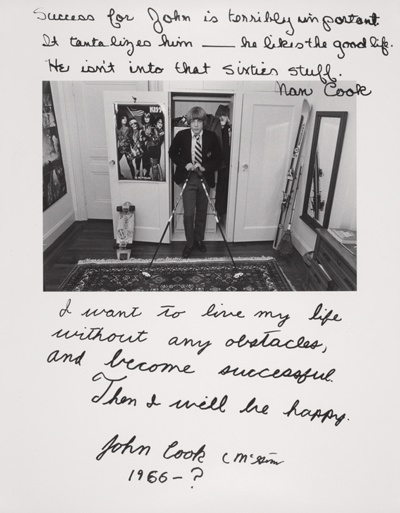 Success for John is terribly important
It tantalizes him — he likes the good life.
He isn't into that sixties stuff.
Nan Cook
KISS
I want to live my life
without any obstacles,
and become successful.
Then I will be happy.
John Cook
1966 – ?